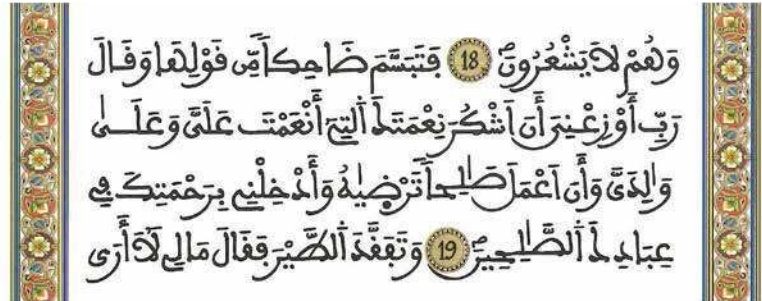 وَهُمْ لَا يَشْعُرُونَ 18 فَتَبَسَّمَ ضَاحِكاً مِّن قَوْلِهَا وَقَالَ
رَبِّ أَوْزِعْنِيَ أَنَ اَشْكُرَ نِعْمَتَكَ اَلتِيَ أَنْعَمْتَ عَلَيَّ وَعَلَىٰ
وَٰلِدَيَّ وَأَنَ اَعْمَلَ صَٰلِحاً تَرْضَيٰهُ وَأَدْخِلْنِي بِرَحْمَتِكَ فِي
عِبَادِكَ اَلصَّٰلِحِينَ 19 وَتَفَقَّدَ اَلطَّيْرَ فَقَالَ مَا لِي لَا أَرَى